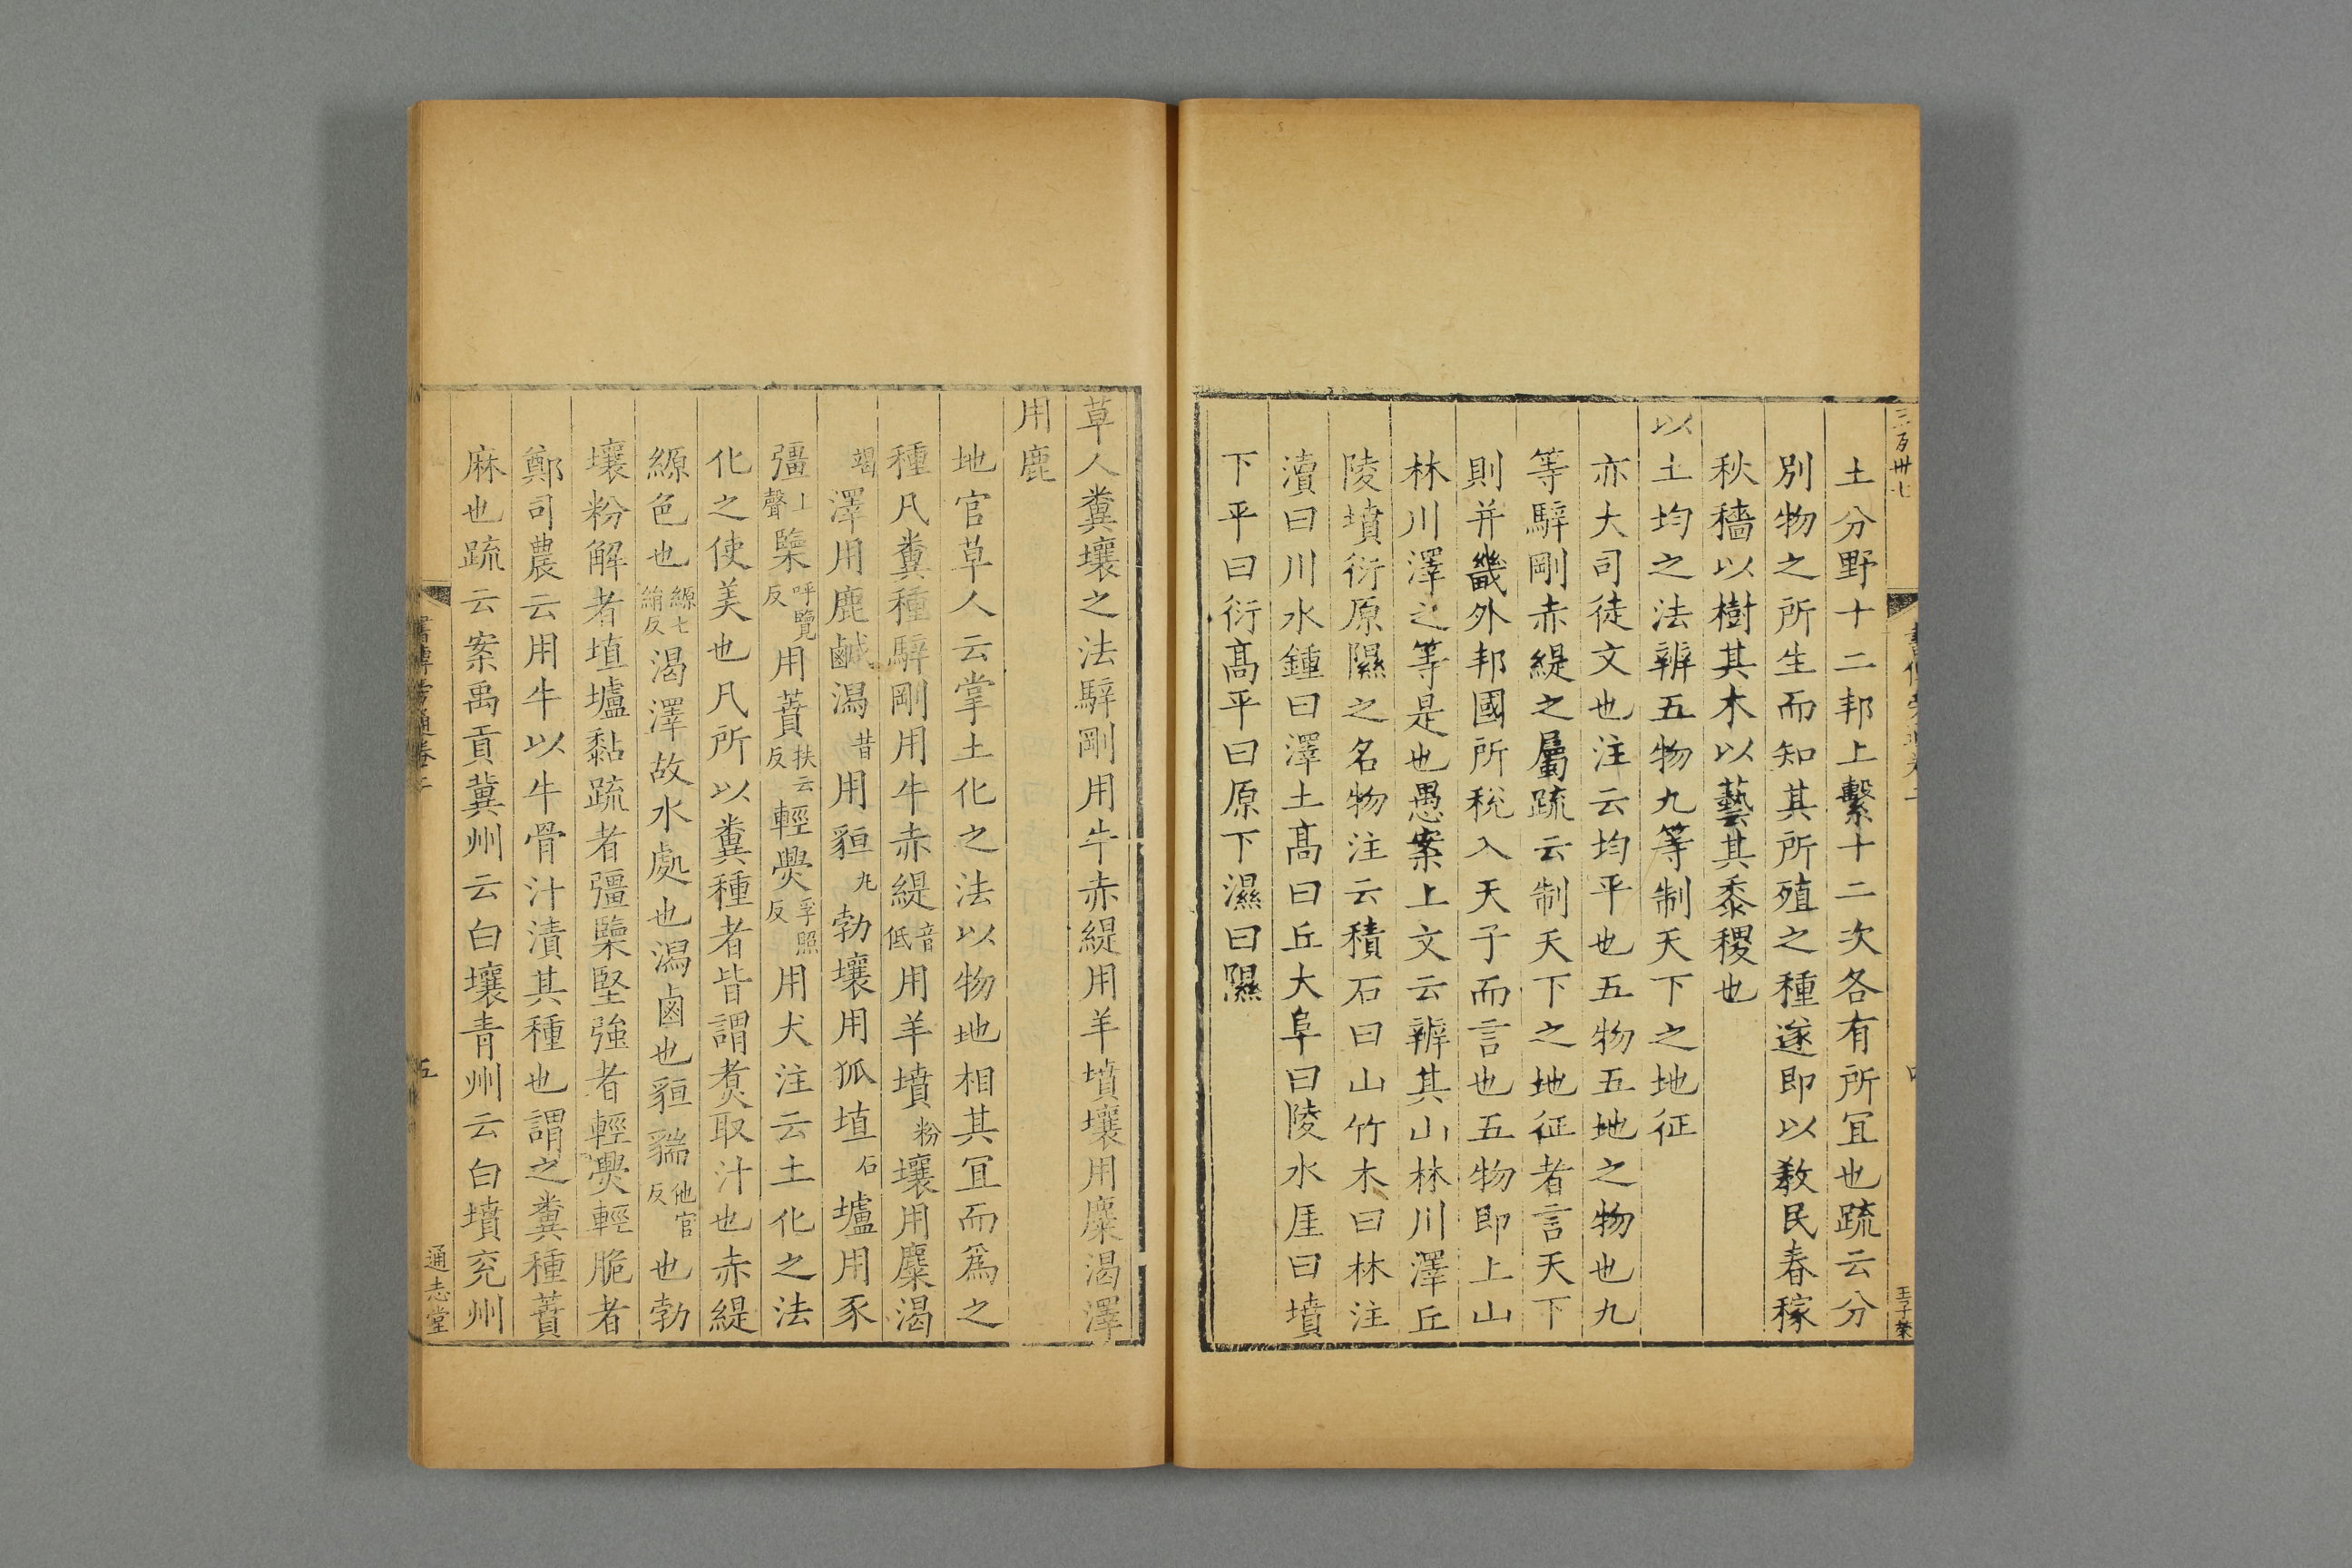 三百卅七
王子榮
土分野十二邦上繫十二次各有所宜也疏云分
別物之所生而知其所殖之種遂即以敎民春稼
秋穡以樹其木以藝其黍稷也
以土均之法辨五物九等制天下之地征
亦大司徒文也注云均平也五物五地之物也九
等騂剛赤緹之屬疏云制天下之地征者言天下
則并畿外邦國所稅入天子而言也五物即上山
林川澤之等是也愚案上文云辨其山林川澤丘
陵墳衍原隰之名物注云積石曰山竹木曰林注
瀆曰川水鍾曰澤土髙曰丘大阜曰陵水厓曰墳
下平曰衍髙平曰原下濕曰隰
草人糞壤之法騂剛用牛赤緹用羊墳壤用麋渴澤
用鹿
地官草人云掌土化之法以物地相其宜而爲之
種凡糞種騂剛用牛赤緹音低用羊墳粉壤用麋渴
竭澤用鹿鹹潟昔用貆丸勃壤用狐埴石壚用豕
彊上聲㯺呼覽反用蕡扶云反輕㷠孚照反用犬注云土化之法
化之使美也凡所以糞種者皆謂煑取汁也赤緹
縓色也縓七絹反渴澤故水處也潟鹵也貆貒他官反也勃
壤粉解者埴壚黏疏者彊㯺堅強者輕㷠輕脆者
鄭司農云用牛以牛骨汁漬其種也謂之糞種蕡
麻也疏云案禹貢冀州云白壤青州云白墳兖州
書傳旁通卷二
五
通志堂